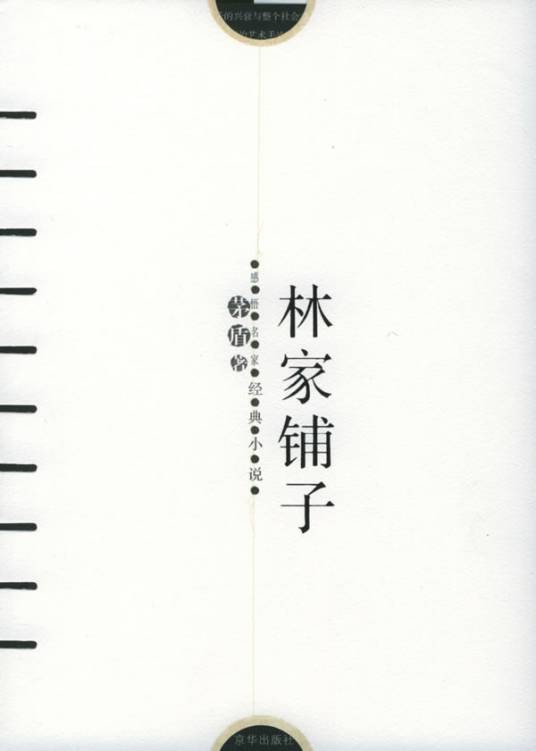 的兴衰与整个社会
的艺术手法
林家铺子
感悟名家经典小说
茅盾著
京华出版社